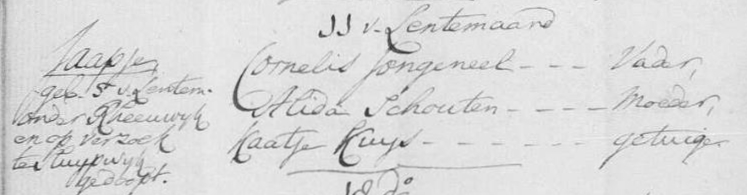 11 v. Lentemaand
Jaapje,
geb. 5 v. Lentem.
onder Rheeuwyk
en op verzoek
te Sluypwyk
gedoopt.
Cornelis Jongeneel - - - Vader,
Alida Schouten - - - - Moeder,
Kaatje Kuys - - - - - - getuige.
18 do